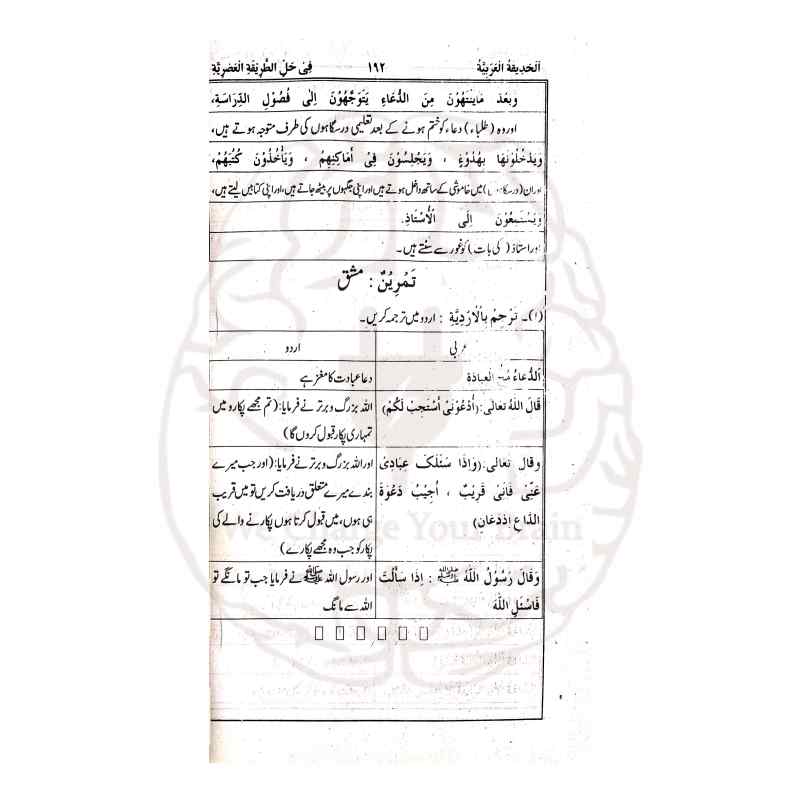 اَلْحَدِيقَةُ الْعَرَبِيَّةُ ۱۹۲ فِیْ حَلِّ الطَّرِيْقَةِ الْعَصْرِيَّةِ
وَبَعْدَ مَايَنْتَهُوْنَ مِنَ الدُّعَاءِ يَتَوَجَّهُوْنَ اِلٰى فُصُوْلِ الدِّرَاسَةِ،
اور وہ (طلباء) دعاء کو ختم ہونے کے بعد تعلیمی درسگاہوں کی طرف متوجہ ہوتے ہیں،
وَيَدْخُلُوْنَهَا بِهُدُوْءٍ ، وَيَجْلِسُوْنَ فِیْ اَمَاكِنِهِمْ ، وَيَأْخُذُوْنَ كُتُبَهُمْ،
اور ان میں خاموشی کے ساتھ داخل ہوتے ہیں اور اپنی جگہوں پر بیٹھ جاتے ہیں، اور اپنی کتابیں لیتے ہیں،
وَيَسْتَمِعُوْنَ اِلَى الْاُسْتَاذِ.
اور استاذ (کی بات) کو غور سے سنتے ہیں۔
تَمْرِيْنٌ : مشق
(۱)۔ تَرْجِمْ بِالْاُرْدِيَّةِ : اردو میں ترجمہ کریں۔
عربی اردو
اَلدُّعَاءُ مُخُّ الْعِبَادَةِ دعا عبادت کا مغز ہے
قَالَ اللّٰهُ تَعَالٰى: (اُدْعُوْنِیْ اَسْتَجِبْ لَكُمْ) اللہ بزرگ و برتر نے فرمایا: (تم مجھے پکارو میں
تمہاری پکار قبول کروں گا)
وقَالَ تَعَالٰى: (وَاِذَا سَئَلَکَ عِبَادِیْ اور اللہ بزرگ و برتر نے فرمایا: (اور جب میرے
عَنِّیْ فَاِنِّیْ قَرِيْبٌ ، اُجِيْبُ دَعْوَةَ بندے میرے متعلق دریافت کریں تو میں قریب
الدَّاعِ اِذَادَعَانِ) ہی ہوں، میں قبول کرتا ہوں پکارنے والے کی
پکار کو جب وہ مجھے پکارے)
وَقَالَ رَسُوْلُ اللّٰهِ ﷺ : اِذَا سَأَلْتَ اور رسول اللہ ﷺ نے فرمایا جب تو مانگے تو
فَاسْئَلِ اللّٰهَ اللہ سے مانگ
We Change Your Brain